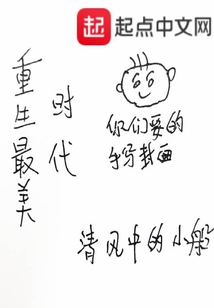 起 起点中文网
重生最美
时代
你们要的
手写封面
清风中的小船